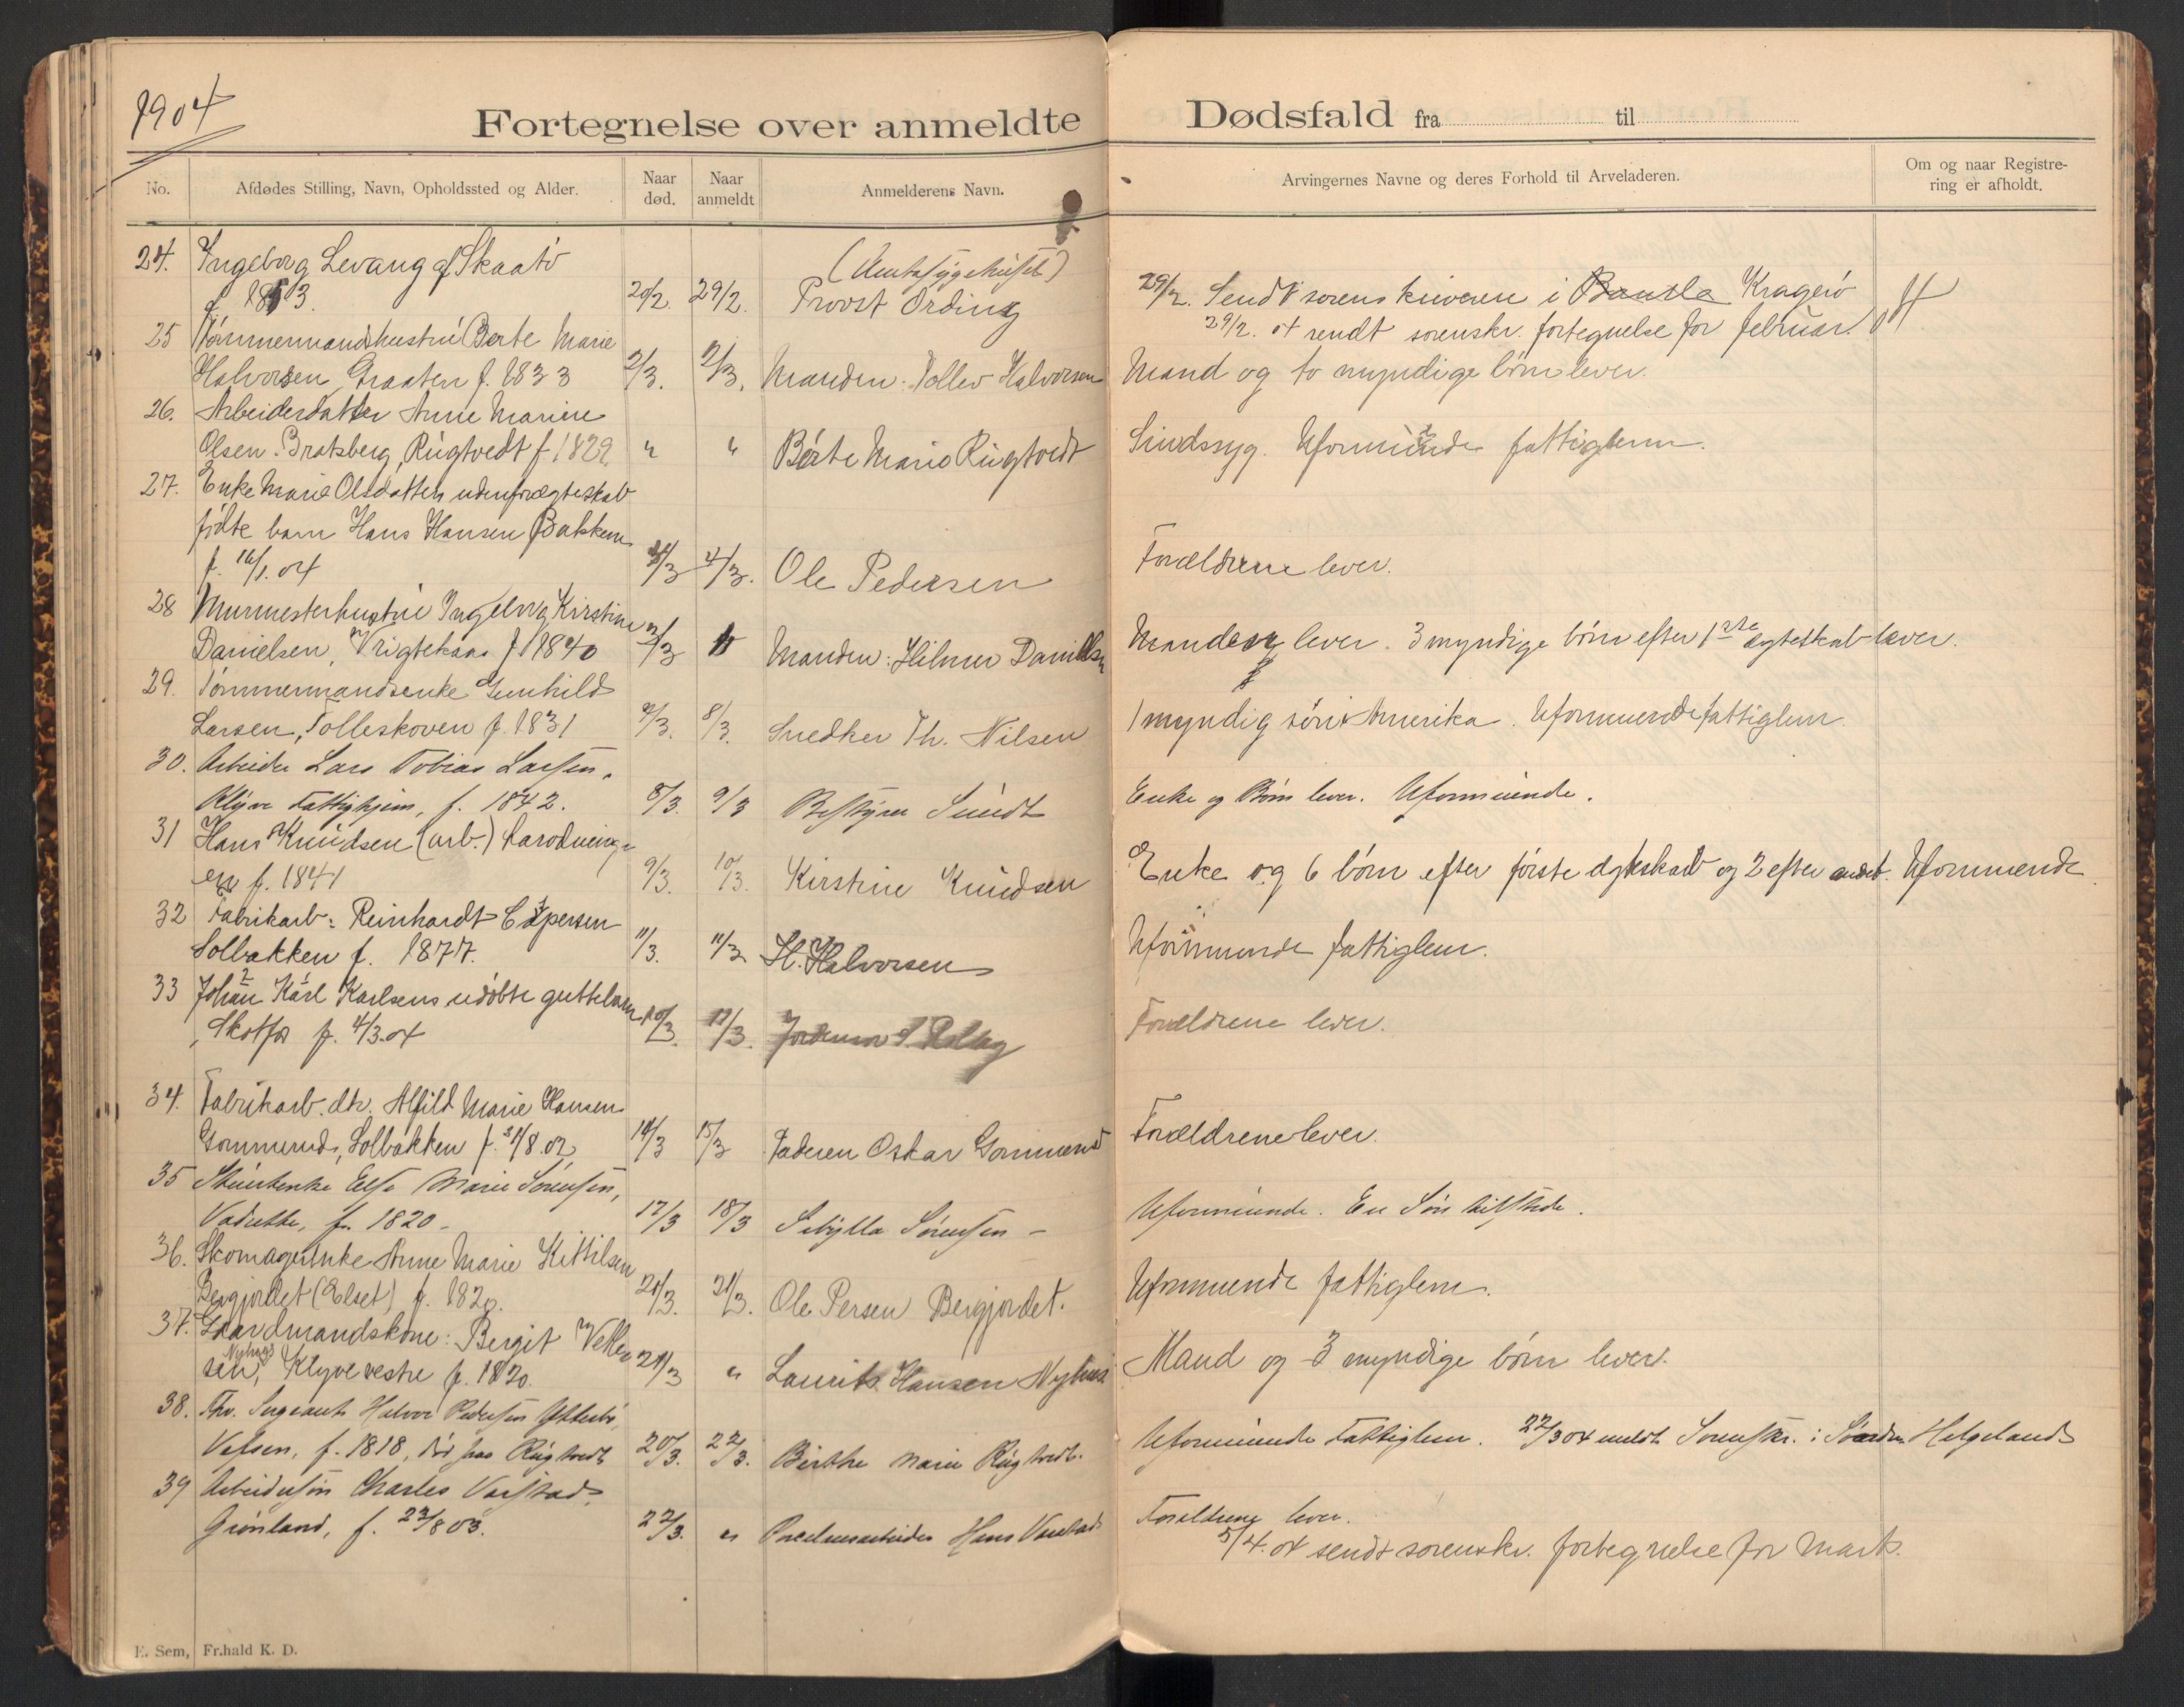 1904
Fortegnelse over anmeldte Dødsfald fra til
No. Afdødes Stilling, Navn, Opholdssted og Alder. Naar død. Naar anmeldt Anmelderens Navn. Arvingernes Navne og deres Forhold til Arveladeren. Om og naar Registrering er afholdt.
24. Ingeborg Levang af Skaatø (Amtssygehuset)
f. 1853. 20/2. 29/2. Provst Ording 29/2. Sendt sorenskriveren i Bamle Kragerø
29/2. 04 sendt sorenskr. fortegnelse for februar.
25 Tømmermandshustru Berte Marie
Halvorsen, Graaten f. 1833 2/3. 2/3. Manden: Tollev Halvorsen Mand og to myndige børn lever.
26. Arbeiderdatter Anne Marie
Olsen Bratsberg, Rugtvedt f. 1829 " " Berte Marie Rugtvedt Sindssyg. Uformuende fattiglem.
27. Enke Marie Olsdatters udenforægteskab
fødte barn Hans Hansen Bakken
f. 16/1. 04 /3 4/3. Ole Pedersen Forældrene lever.
28 Murmesterhustru Ingeborg Kirstine
Danielsen, f 1840 /3 Manden: Hilmer Danielsen Manden lever. 3 myndige børn efter 1ste egteskab lever.
29. Tømmermandsenke Gunhild
Larsen, Tolleskoven f. 1831 /3. 8/3. Snedker Th. Nilsen 1 myndig søn i Amerika. Uformuende fattiglem.
30. Arbeider Lars Tobias Larsen,
Klyve Fattighjem, f. 1842. 8/3. 9/3 Bestyrer Sundt Enke og Børn lever. Uformuende.
31 Hans Knudsen (arb.)
en f. 1841 9/3. 10/3. Kirstine Knudsen Enke og 6 børn efter første egteskab og 2 efter andet. Uformuende
32 Fabrikarb: Reinhardt Espersen
Solbakken f. 1877. 11/3. 11/3 H. Halvorsen Uformuende fattiglem.
33 Johan Karl Karlsens udøbte guttebarn
Skotfos f. 4/3.04 10/3. 12/3. Forældrene lever.
34. Fabrikarb. dtr. Alfild Marie Hansen
Gommerud, Solbakken f. 31/8.02 14/3 15/3 Faderen Oskar Gommerud Forældrene lever.
35 Else Marie Sørensen,
Vadrette, f. 1820 - 17/3 18/3 Sibylla Sørensen - Uformuende. En Søn tilstede.
36. Skomagerenke Anne Marie Kittilsen
Bergjordet (Elset) f. 1820. 20/3. 21/3. Ole Persen Bergjordet. Uformuende fattiglem.
37. Gaardmandskone: Bergit Vetle-
sen, Nyhus Klyve vestre f. 1820. 21/3 " Laurits Hansen Nyhus Mand og 3 myndige børn lever.
38. Fhv. Sergeant Halvor Pedersen Ytterbø,
Vefsen, f. 1818, død paa Rugtvedt 20/3. 22/3. Birthe Marie Rugtvedt. Uformuende Fattiglem. 22/3 04 meldt Sorenskr. i Søndre Helgeland
39 Arbeidersøn Charles Varstad,
Grønland, f. 23/8 03. 22/3. " Porcelænsarbeider Hans Varstad Forældrene lever.
5/4. 04 sendt sorenskr. fortegnelse for Marts.
E. Sem, Fr.hald K. D.